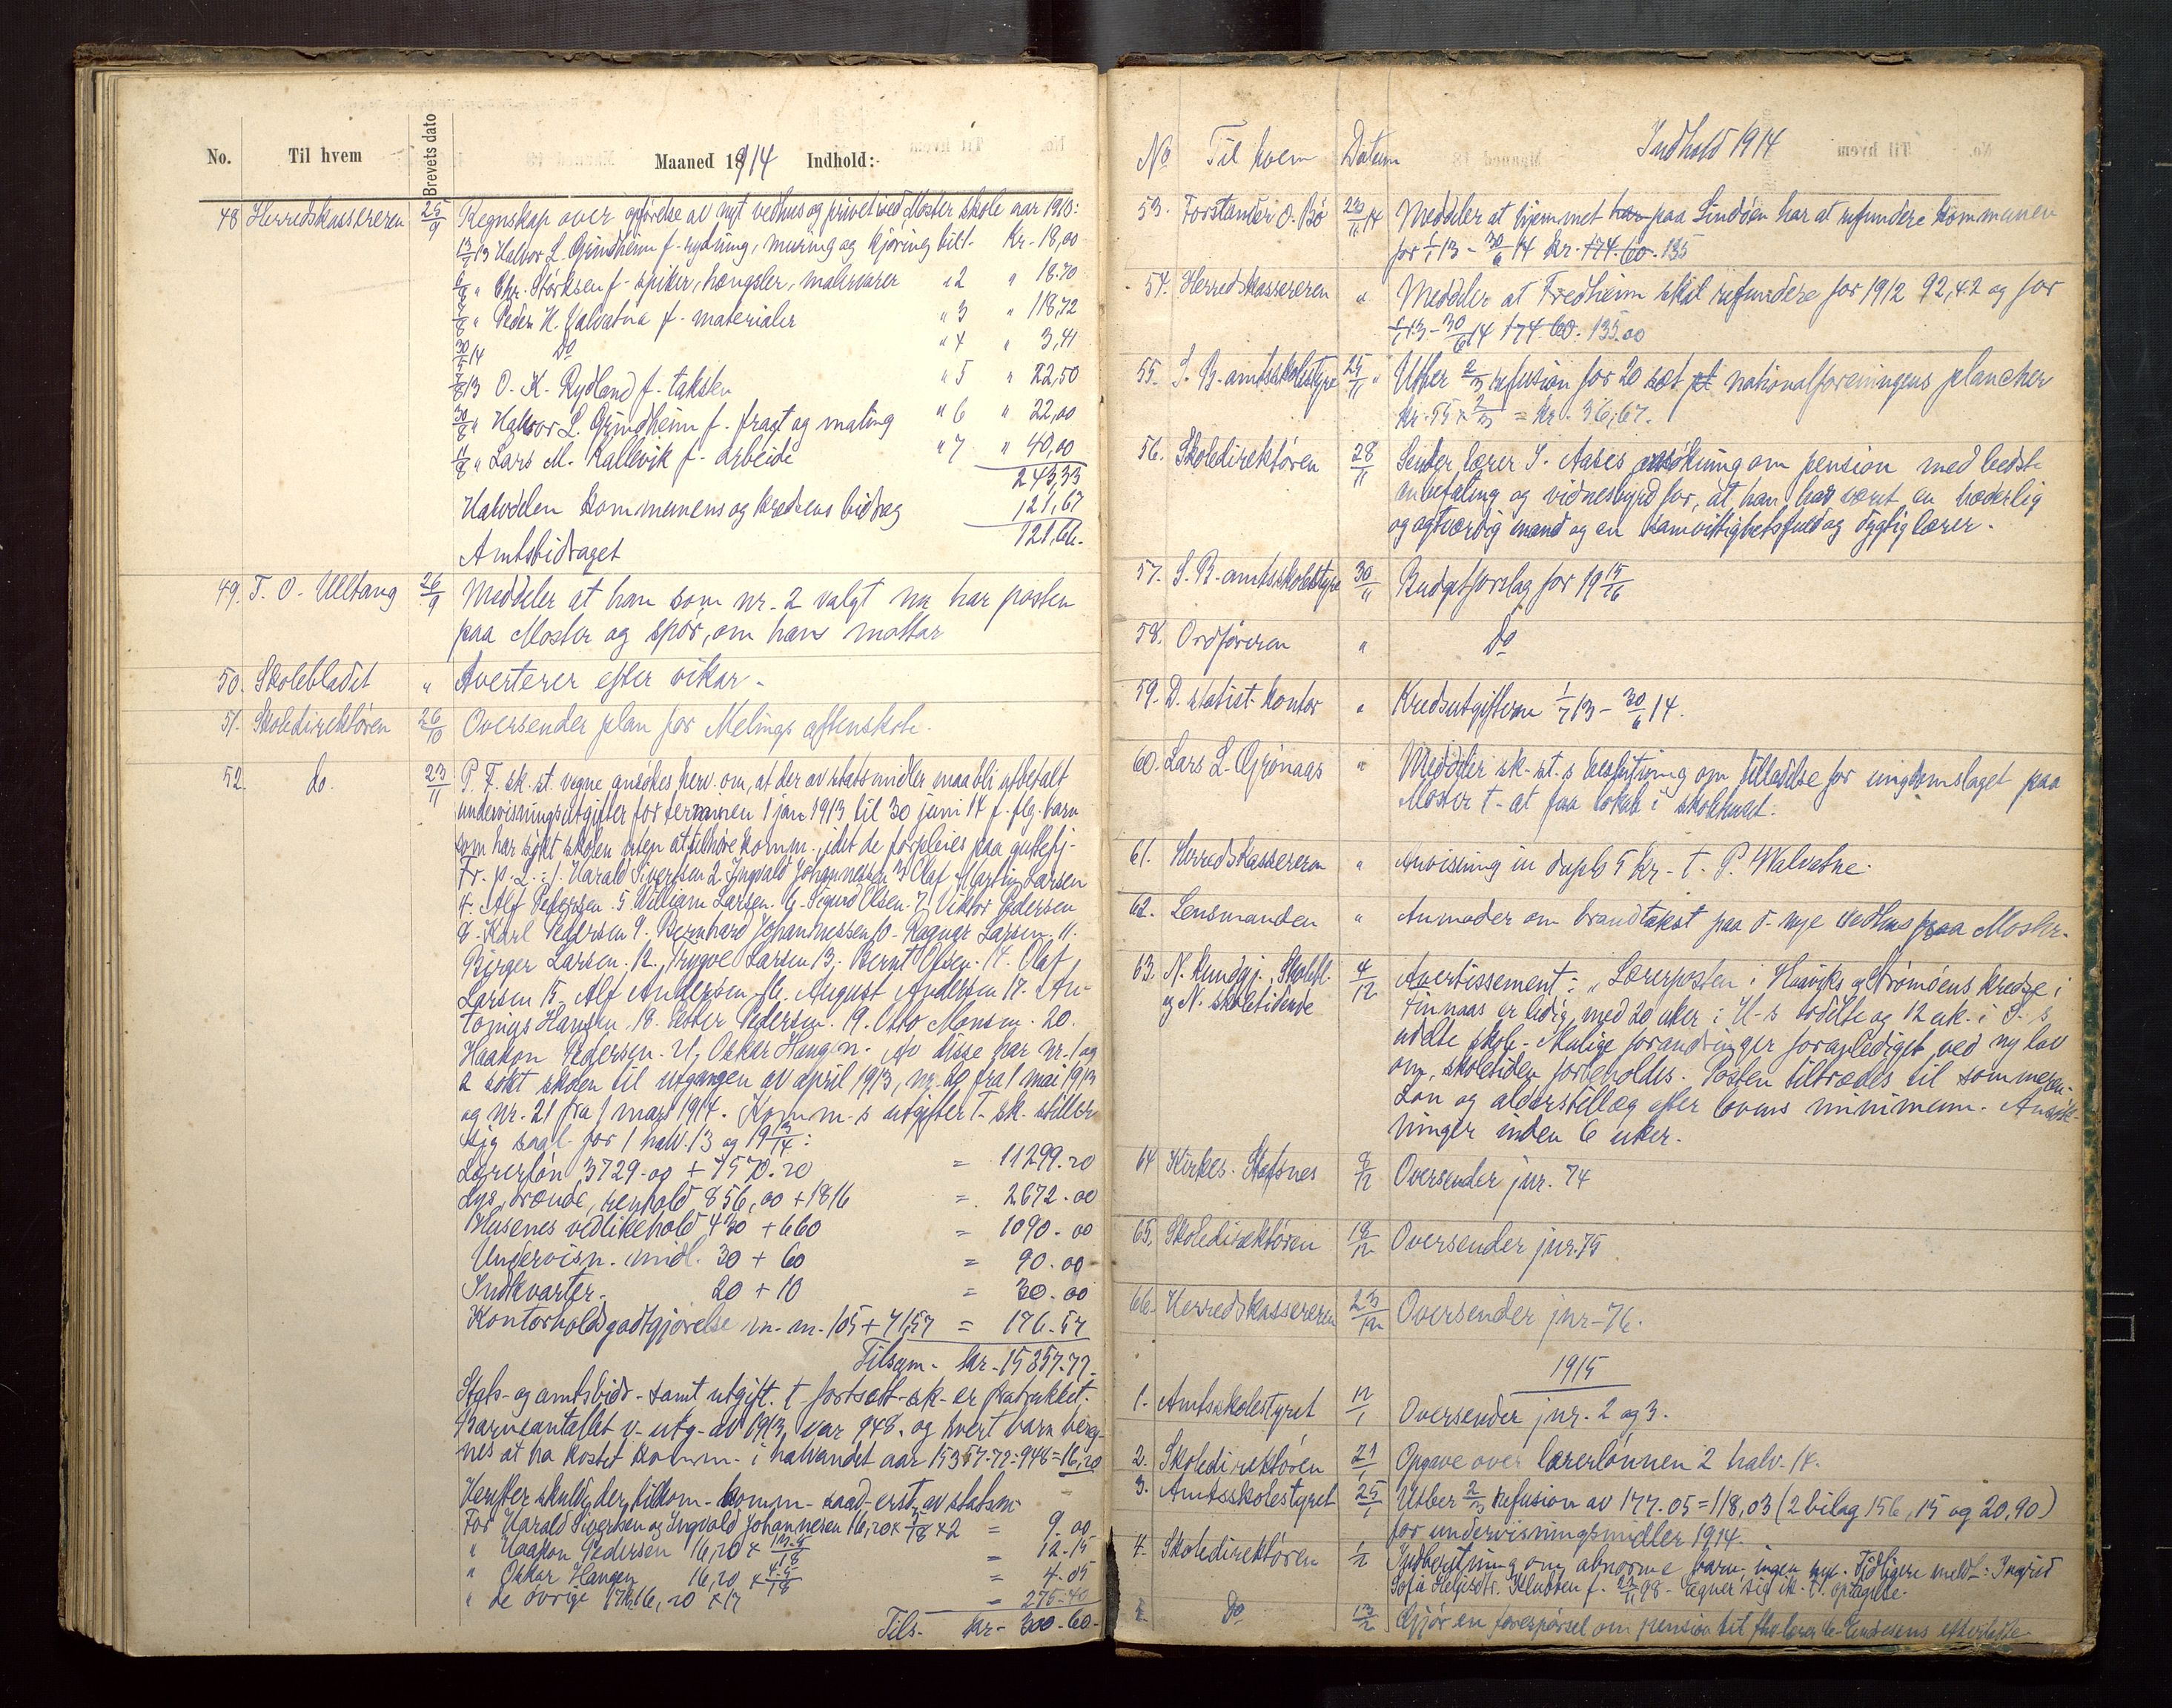 No. Til hvem Brevets dato Maaned 1914 Indhold:
48 Herredskassereren 25/9 Regnskap over opførelse av nyt vedhus og privet ved Moster skole aar 1913:
13/13 Halvor L. Grindheim f. rydning, muring og kjøring bil 1. Kr. 18,00
" Chr. Størksen f. spiker, hængsler, malervarer " 2 " 18.70
" Peder H. Valvatna f. materialer " 3 " 118,72
30/ 14 Do " 4 " 3,41
13 O. K. Rydland f. taksten " 5 " 22,50
30/8 " Halvor L. Grindheim f. fragt og maling " 6 " 22,00
11/8 " Lars M. Kallevik f. arbeide " 7 " 40,00
243,33
Halvdelen kommunens og kredsens bidrag 121,67
Amtsbidraget 121,66.
49. T. O. Ulltang 26/9 Meddeler at han som nr. 2 valgt nu har posten
paa Moster og spør, om han mottar
50. Skolebladet " Averterer efter vikar.
51. Skoledirektøren 26/10 Oversender plan for Melings aftenskole.
52. do. 23/11 P. F. sk. st. vegne ansøkes herv. om, at der av statsmidler maa bli utbetalt
undervisningsutgifter for terminen 1 jan 1913 til 30 juni 14 f. flg. barn
som har søkt skolen uten at tilhøre komm., idet de forpleies paa guttehj.
Fr. p. L.: 1. Harald Sivertsen 2. Ingvald Johannessen 3 Olaf Martin Larsen
4. Alf Pedersen. 5 William Larsen. 6. Sigurd Olsen. 7. Viktor Pedersen
8. Karl Pedersen 9. Bernhard Johannessen 10. Ragnar Larsen. 11.
Birger Larsen. 12. Trygve Larsen 13. Bernt Olsen. 14. Olaf
Larsen 15. Alf Andersen 16. August Andersen 17. An-
tonius Hansen. 18. Peder Pedersen. 19. Otto Monsen. 20.
Haakon Pedersen. 21. Oskar Hangen. Av disse har nr. 1 og
2 søkt skolen til utgangen av april 1913, nr. 20 fra 1 mai 1913
og nr. 21 fra 1 mars 1914. Komm.s utgifter t. sk. stiller
sig sagl. for 1 halv. 13 og 19 13/14:
Lærerløn 3729.00 + 7570.20 = 11299.20
Lys, brænde, renhold 856,00 + 1816 = 2672.00
Husenes vedlikehold 430 + 660 = 1090.00
Undervisn. midl. 30 + 60 = 90.00
Indkvarter. 20 + 10 = 30.00
Kontorholdsgodtgjørelse m. m. 105 + 71,57 = 176.57
Tilsam. kr. 15357.77.
Stats- og amtsbidr. samt utgift. t. fortsatt. sk. er fratrukket.
Barneantallet v. utg. av 1913 var 948. og hvert barn bereg-
nes at ha kostet komm. i halvandet aar 15357.77 : 948 = 16,20
Herefter skulde der tilkom. komm. saad. erst. av statsm.
For Harald Sivertsen og Ingvald Johannesen 16,20 x 5/18 x 2 = 9.00
" Haakon Pedersen 16,20 x 13.5/18 = 12.15
" Oskar Hangen 16,20 x 4.5/18 = 4.05
" de øvrige 17 16,20 x 17 = 275.40
Tils. kr. 300.60.
No Til hvem Datum Indhold 1914
53. Forstander O. Bø 23/11 14 Meddeler at hjemmet har paa Lindøen har at refundere kommunen
for 1/1 13 - 30/6 14 kr. 174.60. 135
54. Herredskassereren " Meddeler at Fredheim skal refundere for 1912 92,42 og for
1/1 13 - 30/6 14 174.60. 135.00
55. S. B. amtsskolestyre 25/11 " Utber 2/3 refusion for 20 sæt nationalforeningens plancher
kr. 55 x 2/3 = kr. 36,67.
56. Skoledirektøren 28/11 Sender lærer S. Aases ansøkning om pension med bedste
anbefaling og vidnesbyrd for, at han har været en hæderlig
og agtværdig mand og en samvittighetsfuld og dygtig lærer.
57. S. B. amtsskolestyre 30/11 Budgetforslag for 19 15/16
58. Ordføreren " Do
59. D. statist. kontor " Kredsutgifterne 1/7 13 - 30/6 14.
60. Lars L. Grønaas " Meddeler sk. st.s beslutning om tilladelse for ungdomslaget paa
Moster t. at faa lokale i skolehuset.
61. Herredskassereren " Anvisning in duplo 5 kr. t. P. H Valvatne.
62. Lensmanden " Anmoder om brandtakst paa d. nye vedhus paa Moster.
63. N. Kundgj. Skolebl. og N. skoletidende 4/12 Avertissement: "Lærerposten i Haaviks og Strømøens kredse i
Finnaas er ledig, med 20 uker i H.s todelte og 12 uk. i S.s
udelte skole. Mulige forandringer foranlediget ved ny lov
om skoletiden forbeholdes. Posten tiltrædes til sommeren.
Løn og alderstillæg efter lovens minimum. Ansøk-
ninger inden 6 uker.
64 Kirkes. Stafsnes 8/12 Oversender jnr. 74
65. Skoledirektøren 18/12 Oversender jnr. 75
66. Herredskassereren 23/12 Oversender jnr. 76.
1915
1. Amtsskolestyret 12/1 Oversender jnr. 2 og 3.
2. Skoledirektøren 21/1 Opgave over lærerlønnen 2 halv. 14.
3. Amtsskolestyret 25/1 Utber 2/3 Refusion av 177.05 = 118,03 (2 bilag 156,15 og 20,90)
for undervisningsmidler 1914.
4. Skoledirektøren 1/2 Indberetning om abnorme barn: ingen nye. Tidligere meldt: Ingrid
Sofia f. 98. egner sig ik. t. optagelse.
5. Do 13/2 Gjør en forespørsel om pension til fhv. lærer efterladte